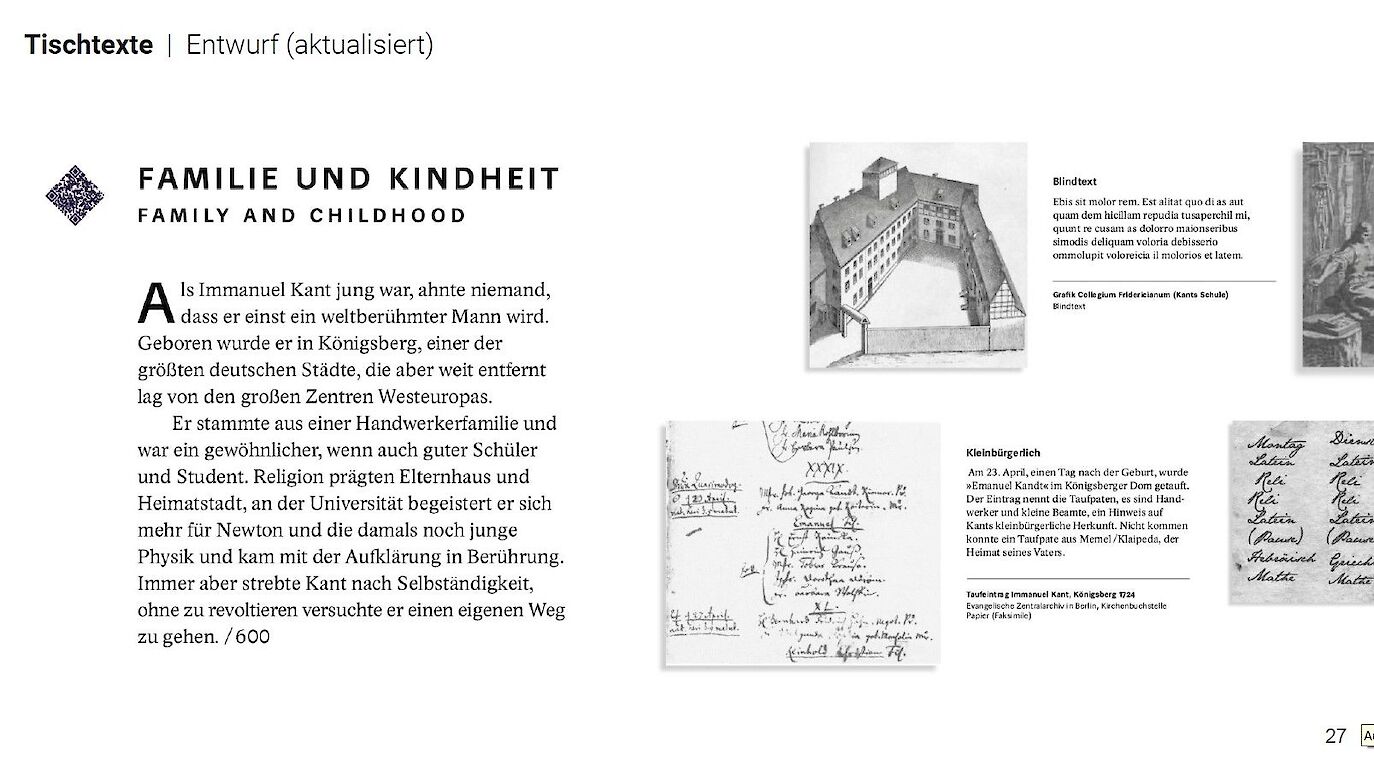 Tischtexte | Entwurf (aktualisiert)
FAMILIE UND KINDHEIT
FAMILY AND CHILDHOOD
Als Immanuel Kant jung war, ahnte niemand,
dass er einst ein weltberühmter Mann wird.
Geboren wurde er in Königsberg, einer der
größten deutschen Städte, die aber weit entfernt
lag von den großen Zentren Westeuropas.
Er stammte aus einer Handwerkerfamilie und
war ein gewöhnlicher, wenn auch guter Schüler
und Student. Religion prägten Elternhaus und
Heimatstadt, an der Universität begeistert er sich
mehr für Newton und die damals noch junge
Physik und kam mit der Aufklärung in Berührung.
Immer aber strebte Kant nach Selbständigkeit,
ohne zu revoltieren versuchte er einen eigenen Weg
zu gehen. /600
Blindtext
Ebis sit molor rem. Est alitat quo di as aut
quam dem hicillam repudia tusaperchil mi,
quunt re cusam as dolorro maionseribus
simodis deliquam voloria debisserio
ommolupit voloreicia il molorios et latem.
Grafik Collegium Fridericianum (Kants Schule)
Blindtext
XXXIX.
Emanuel
XL.
Kleinbürgerlich
Am 23. April, einen Tag nach der Geburt, wurde
»Emanuel Kandt« im Königsberger Dom getauft.
Der Eintrag nennt die Taufpaten, es sind Hand-
werker und kleine Beamte, ein Hinweis auf
Kants kleinbürgerliche Herkunft. Nicht kommen
konnte ein Taufpate aus Memel/Klaipeda, der
Heimat seines Vaters.
Taufeintrag Immanuel Kant, Königsberg 1724
Evangelische Zentralarchiv in Berlin, Kirchenbuchstelle
Papier (Faksimile)
Montag Diens
Latein Latein
Reli Reli
Reli Reli
Latein Latein
(Pause) (Pause
Hebräisch Griech
Mathe Mathe
27